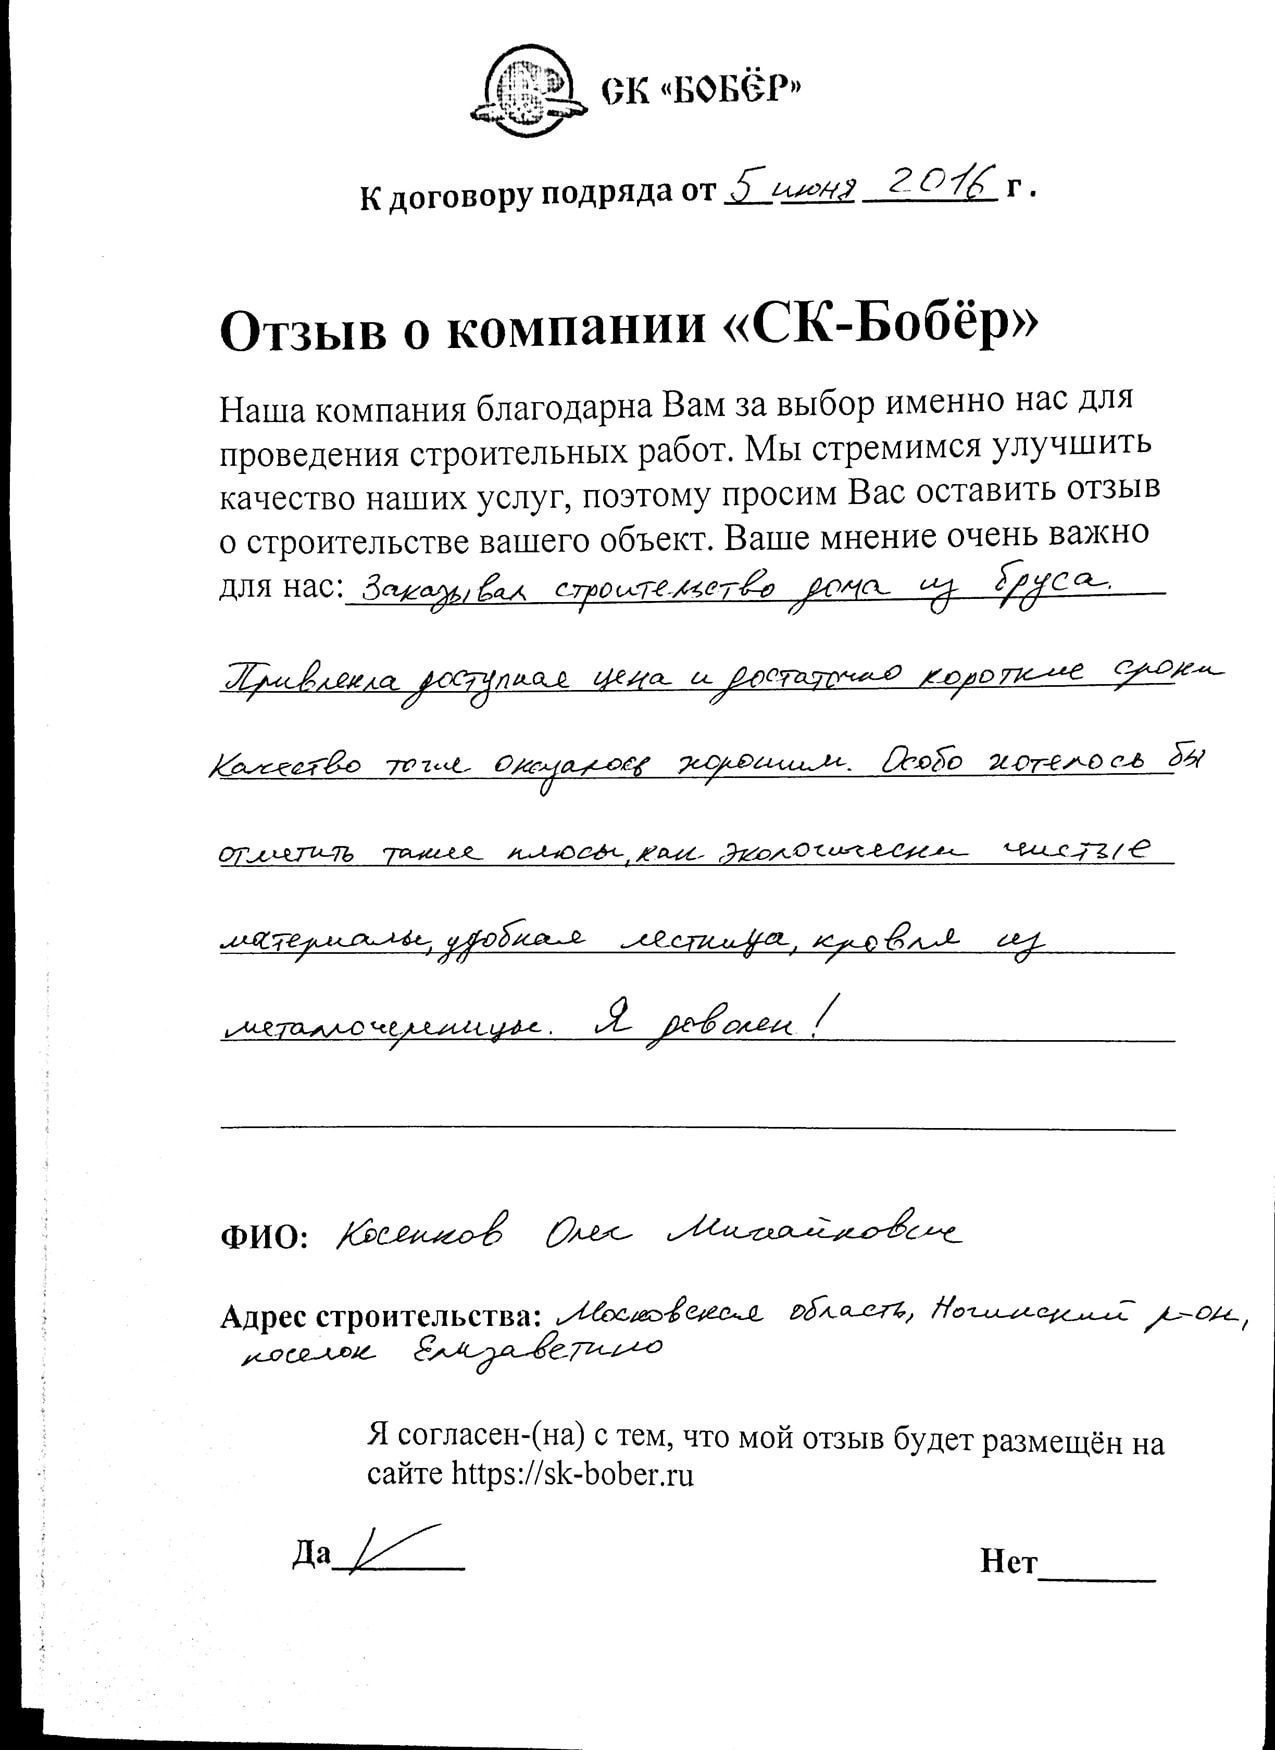 СК «БОБЁР»
К договору подряда от 5 июня 2016 г .
Отзыв о компании «СК-Бобёр»
Наша компания благодарна Вам за выбор именно нас для
проведения строительных работ. Мы стремимся улучшить
качество наших услуг, поэтому просим Вас оставить отзыв
о строительстве вашего объект. Ваше мнение очень важно
для нас: Заказывал строительство дома из бруса.
Привлекла доступная цена и достаточно короткие сроки
Качество тоже оказалось хорошим. Особо хотелось бы
отметить такие плюсы, как экологически чистые
материалы, удобная лестница, кровля из
металлочерепицы. Я доволен!
ФИО: Косенков Олег Михайлович
Адрес строительства: Московская область, Ногинский р-он,
поселок Елизаветино
Я согласен-(на) с тем, что мой отзыв будет размещён на
сайте https://sk-bober.ru
Да Нет